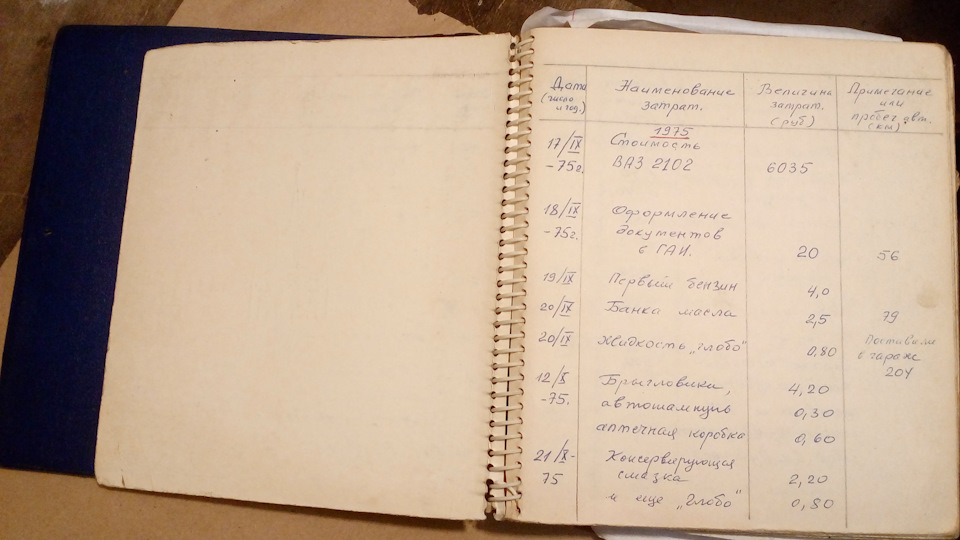 Дата Наименование Величина Примечание
(число затрат. затрат. или
и год.) (руб) пробег авт.
(км)
1975
17/IX Стоимость
-75г. ВАЗ 2102 6035
18/IX Оформление
-75г. документов
в ГАИ. 20 56
19/IX Первый бензин 4,0
20/IX Банка масла 2,5 79
20/IX Жидкость „глобо" 0,80 Поставили
в гараж
204
12/X Брызговики, 4,20
-75. автошампунь 0,30
аптечная коробка 0,60
21/X- Консервирующая
75 смазка 2,20
и еще „Глобо" 0,80